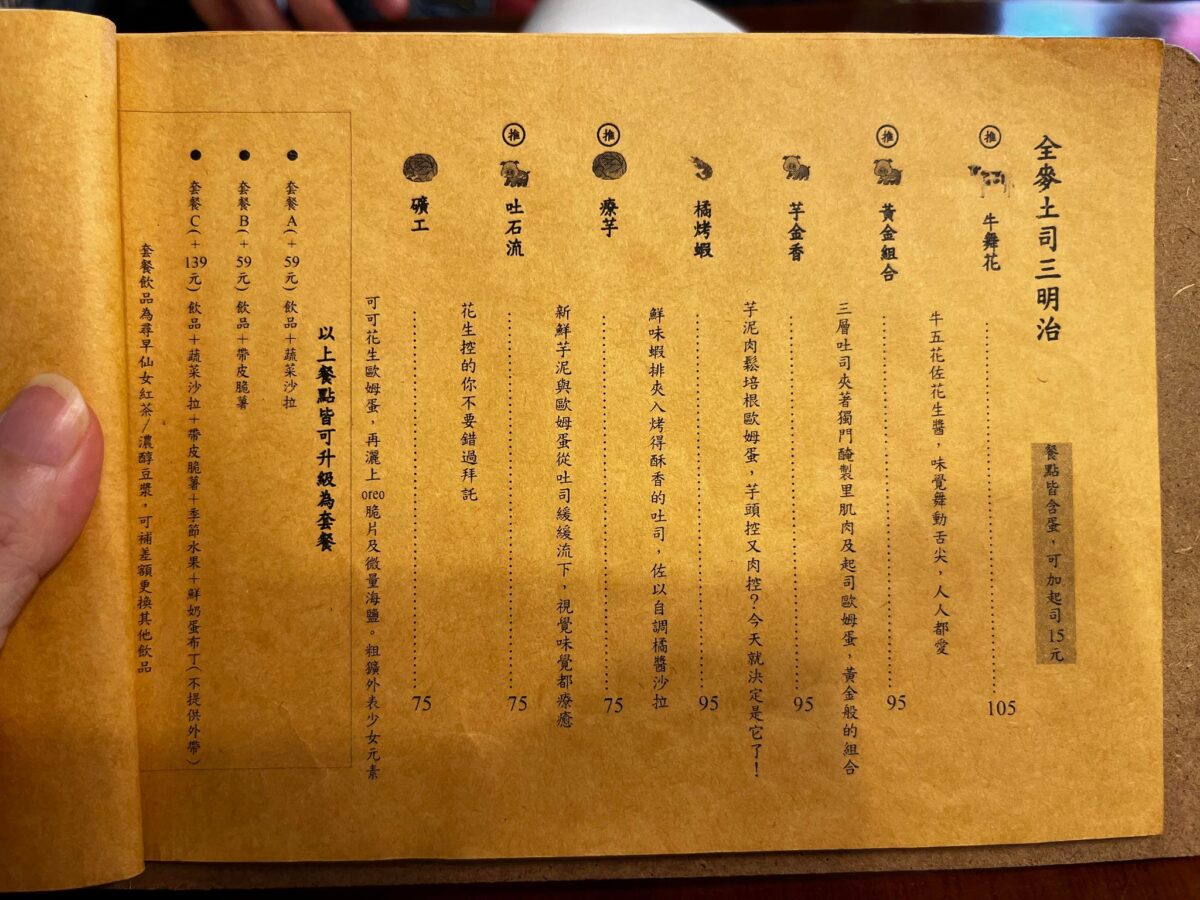 全麥土司三明治
餐點皆含蛋，可加起司15元
推
牛舞花
105
牛五花佐花生醬，味覺舞動舌尖，人人都愛
推
黃金組合
95
三層吐司夾著獨門醃製里肌肉及起司歐姆蛋，黃金般的組合
芋金香
95
芋泥肉鬆培根歐姆蛋，芋頭控又肉控？今天就決定是它了！
橘烤蝦
95
鮮味蝦排夾入烤得酥香的吐司，佐以自調橘醬沙拉
推
療芋
75
新鮮芋泥與歐姆蛋從吐司緩緩流下，視覺味覺都療癒
推
吐石流
75
花生控的你不要錯過拜託
礦工
75
可可花生歐姆蛋，再灑上oreo脆片及微量海鹽。粗鑛外表少女元素
以上餐點皆可升級為套餐
●套餐A(+59元)飲品+蔬菜沙拉
●套餐B(+59元)飲品+帶皮脆薯
●套餐C(+139元)飲品+蔬菜沙拉+帶皮脆薯+季節水果+鮮奶蛋布丁(不提供外帶)
套餐飲品為尋早仙女紅茶/濃醇豆漿，可補差額更換其他飲品